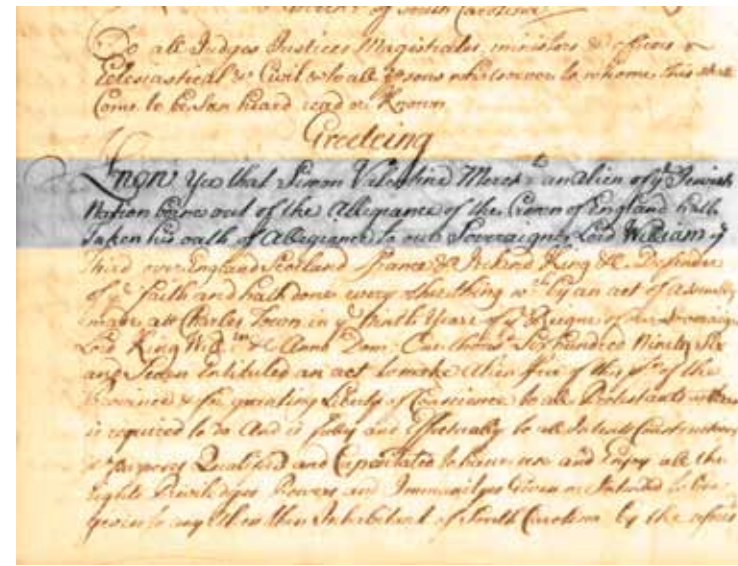 of South Carolina
To all Judges Justices Magistrates, ministers & officers
Eclesiastical & Civil & to all whatsoever to whome this
Come to be seen heard read or Known
Greeteing
Know Yee that Simon Valentine Merch:t an alien of ye Jewish
Nation borne out of the Allegiance of the Crown of England hath
Taken his oath of Allegiance to our Sovereigne Lord William ye
Third over England Scotland France & Ireland King &c Defender
of ye faith and hath done every other thing wch by an act of Assembly
made att Charles Town in ye Ninth Year of ye Reigne of our Sovereign
Lord King Will:m &c Anno Dom: One thous:d Six hundred Ninety Six
and Seven Entituled an act to make alien free of this pt of the
Province & for granting Liberty of Conscience to all Protestants
is required to do And is fully and Effectually to all Intents Constructions
& purposes Qualified and Capacitated to have use and Enjoy all the
Rights Priviledges Powers and Immunityes Given or Intended to be
given to any Alien then Inhabitant of South Carolina by the afores